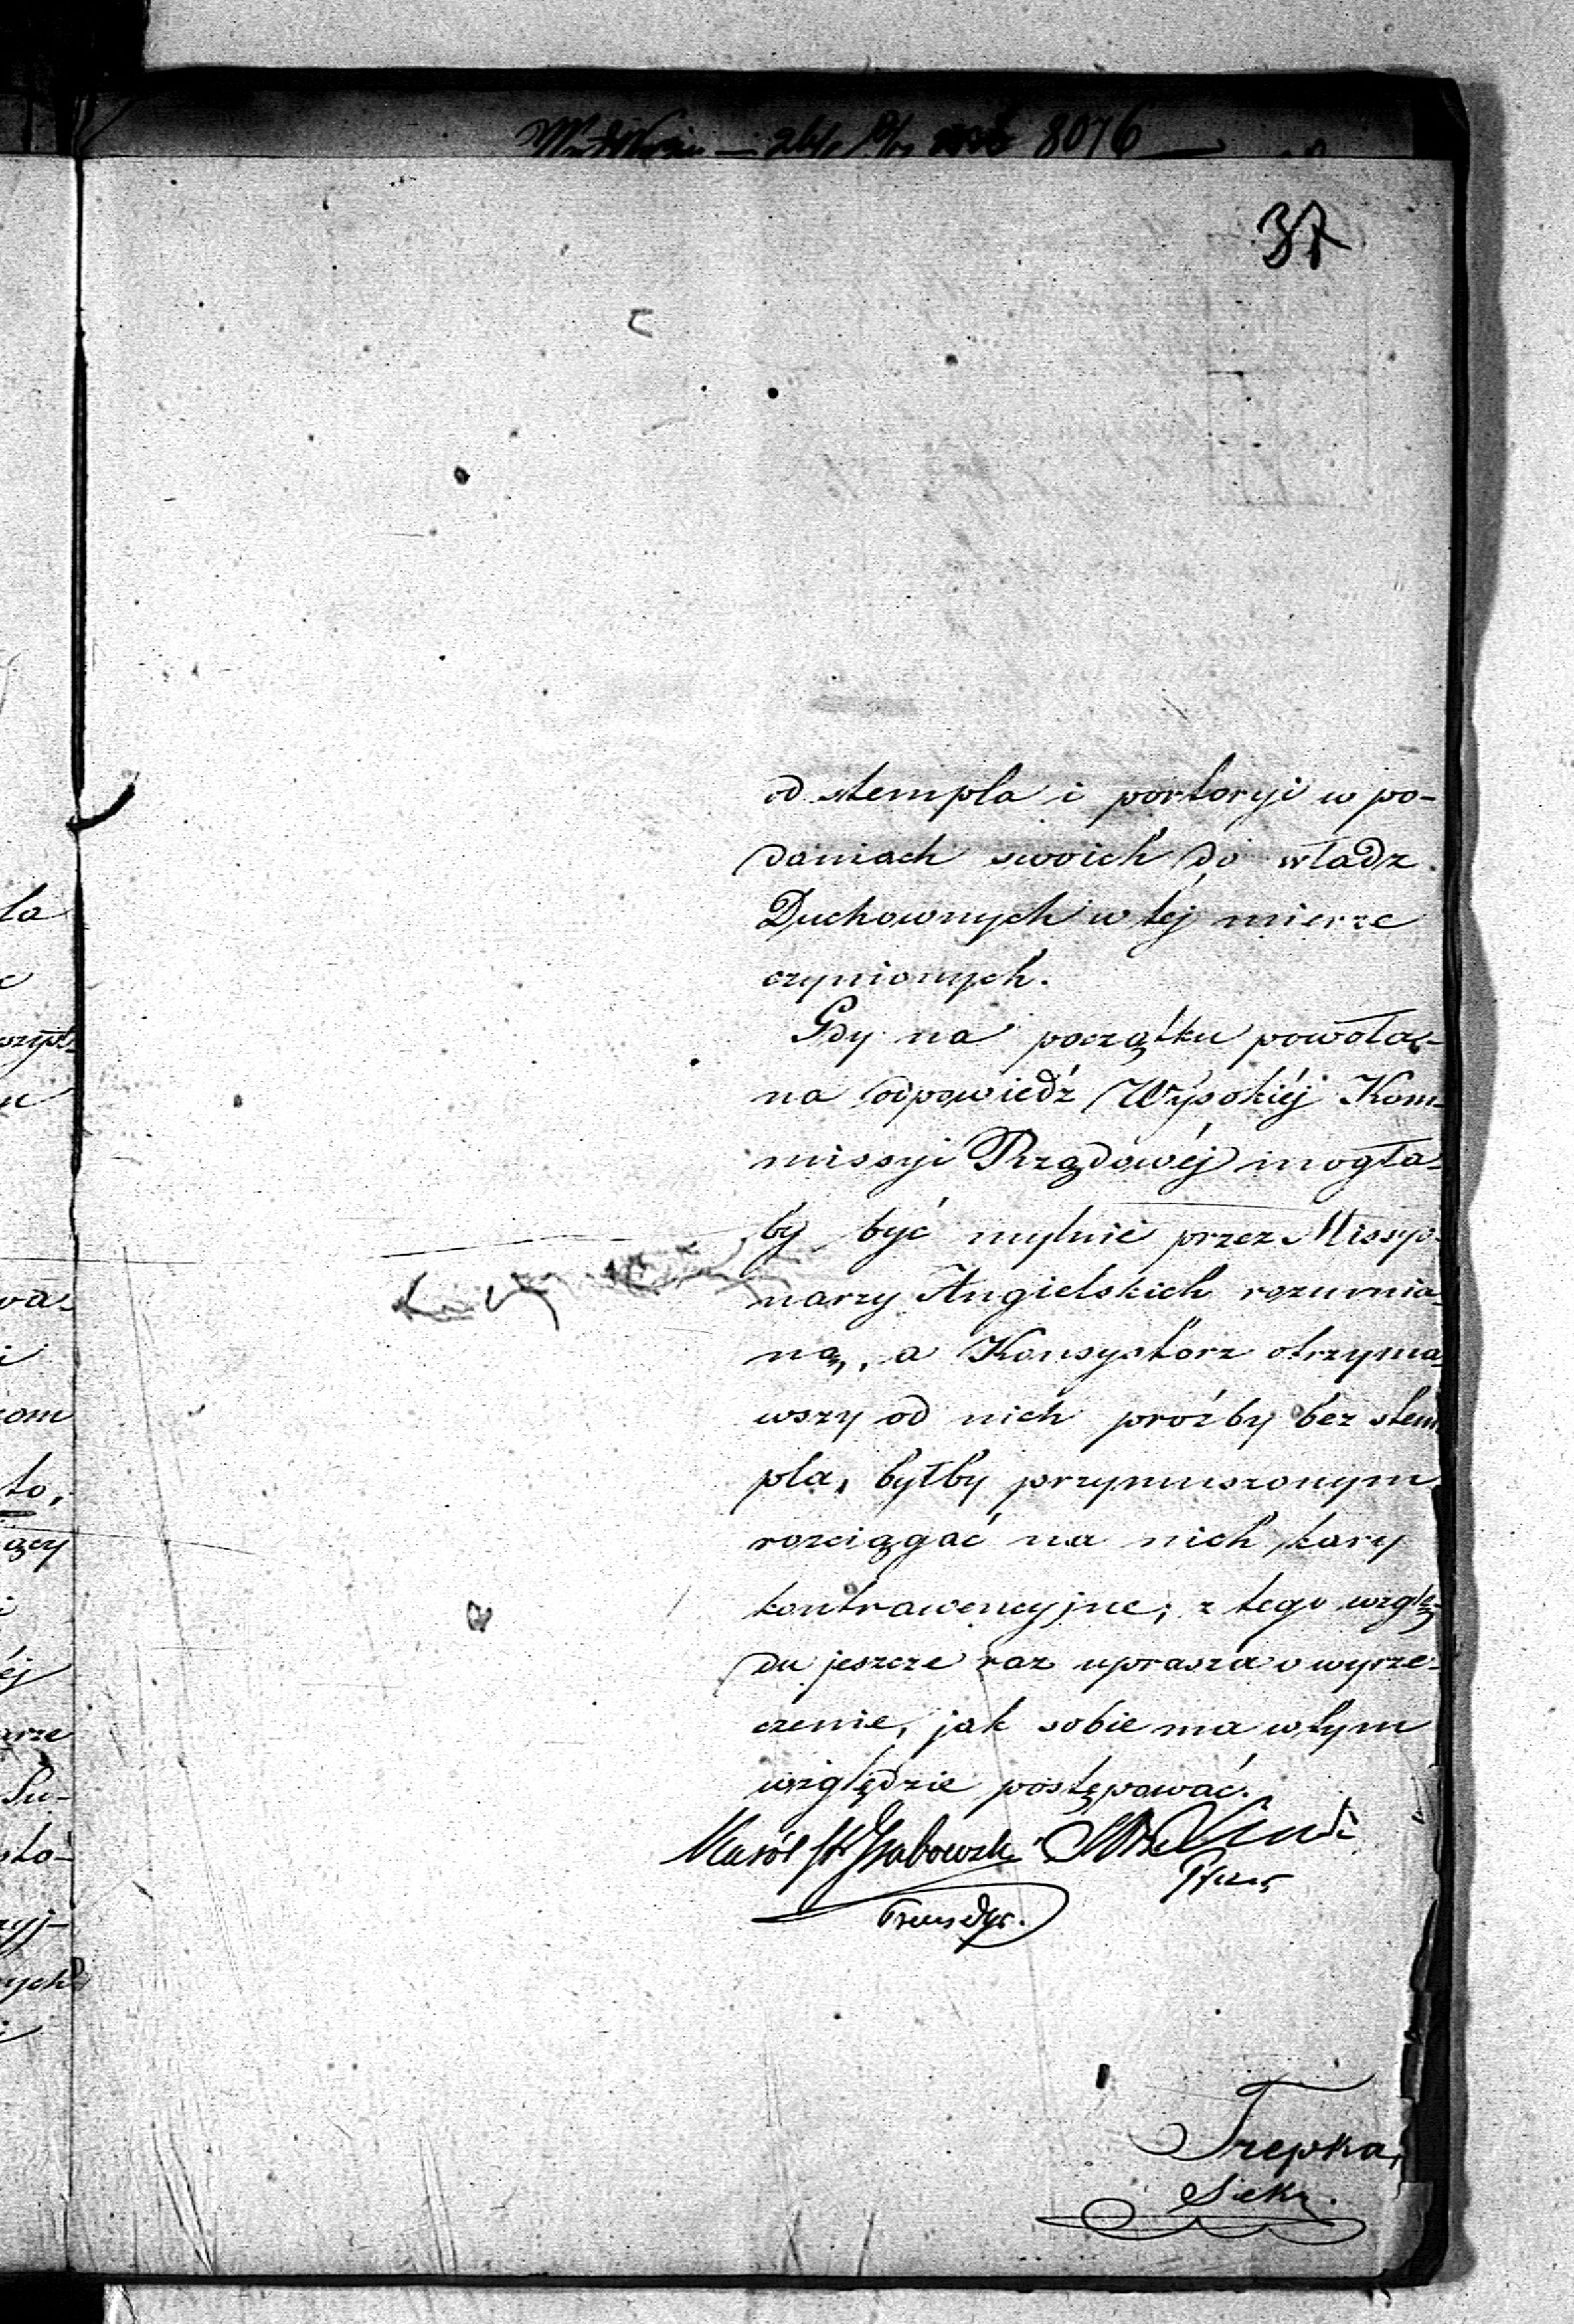 8076
37
od stempla i portoryi w po-
daniach swoich do władz
Duchownych w téj mierze
czynionych.
Gdy na początku powoła-
na odpowiedź Wysokiéj Kom-
missyi Rządowéj mogła-
by być mylnie przez Missyo-
narzy Angielskich rozumia-
ną, a Konsystorz otrzyma-
wszy od nich proźby bez stem
pla, byłby przymuszonym
rozciągać na nich kary
kontrawencyjne; z tego wzglę-
du jeszcze raz uprasza o wyrze-
czenie, jak sobie ma w tym
względzie postępować.
Karól Grabowski
Trepka,
Sekr.
ła
wa-
om
to,
ący
éj
arze
Pu-
stó-
yj-
ych